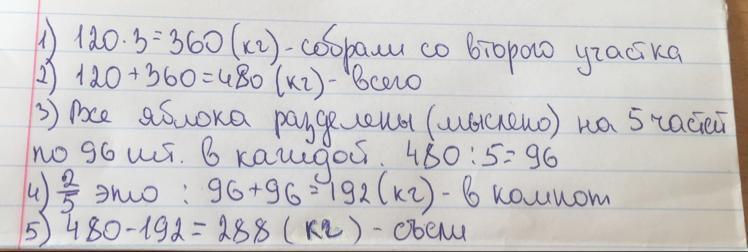 1) 120·3=360(кг)-собрали со второго участка
2) 120+360=480(кг)-всего
3) Все яблока разделены(мыслено) на 5 частей
по 96 шт. в каждой. 480:5=96
4) 2/5 это : 96+96=192(кг)-в компот
5) 480-192=288(кг)-съели